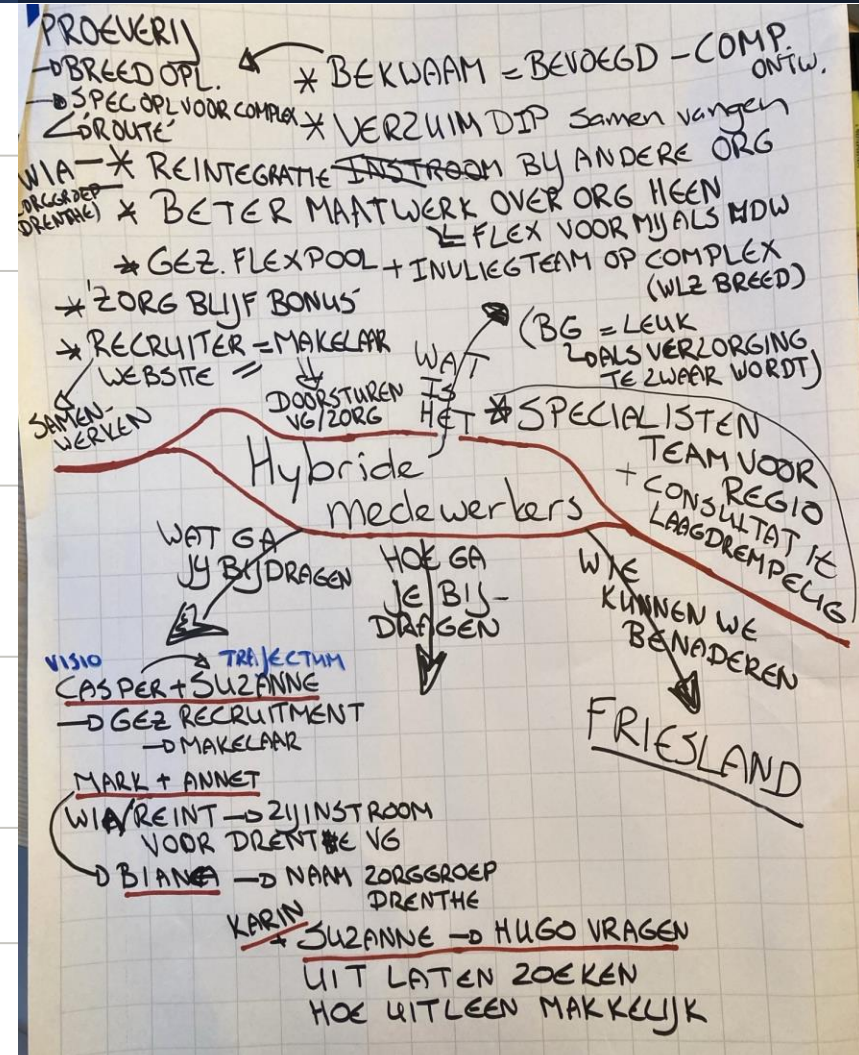 PROEVERIJ
→ BREED OPL.
→ SPEC OPL VOOR COMPLEX
ROUTE
* BEKWAAM = BEVOEGD - COMP. ONTW.
* VERZUIM DIP samen vangen
WIA - * REINTEGRATIE INSTROOM BIJ ANDERE ORG
ZORGGROEP DRENTHE)
* BETER MAATWERK OVER ORG HEEN
FLEX VOOR MIJ ALS MDW
* GEZ. FLEXPOOL + INVLIEGTEAM OP COMPLEX
(WLZ BREED)
* 'ZORG BLIJF BONUS'
* RECRUITER = MAKELAAR
WEBSITE
SAMEN-
WERKEN
DOORSTUREN
VG/ZORG
WAT
IS
HET
(BG = LEUK
ALS VERZORGING
TE ZWAAR WORDT)
* SPECIALISTEN
TEAM VOOR
REGIO
+ CONSULTATIE
LAAGDREMPELIG
Hybride
medewerkers
WAT GA
JIJ BIJDRAGEN
HOE GA
JE BIJ-
DRAGEN
WIE
KUNNEN WE
BENADEREN
FRIESLAND
VISIO → TRAJECTUM
CASPER + SUZANNE
→ GEZ RECRUITMENT
→ MAKELAAR
MARK + ANNET
WIA/REINT → ZIJINSTROOM
VOOR DRENTHE VG
→ BIANCA → NAAM ZORGGROEP
DRENTHE
KARIN
+ SUZANNE → HUGO VRAGEN
UIT LATEN ZOEKEN
HOE UITLEEN MAKKELIJK